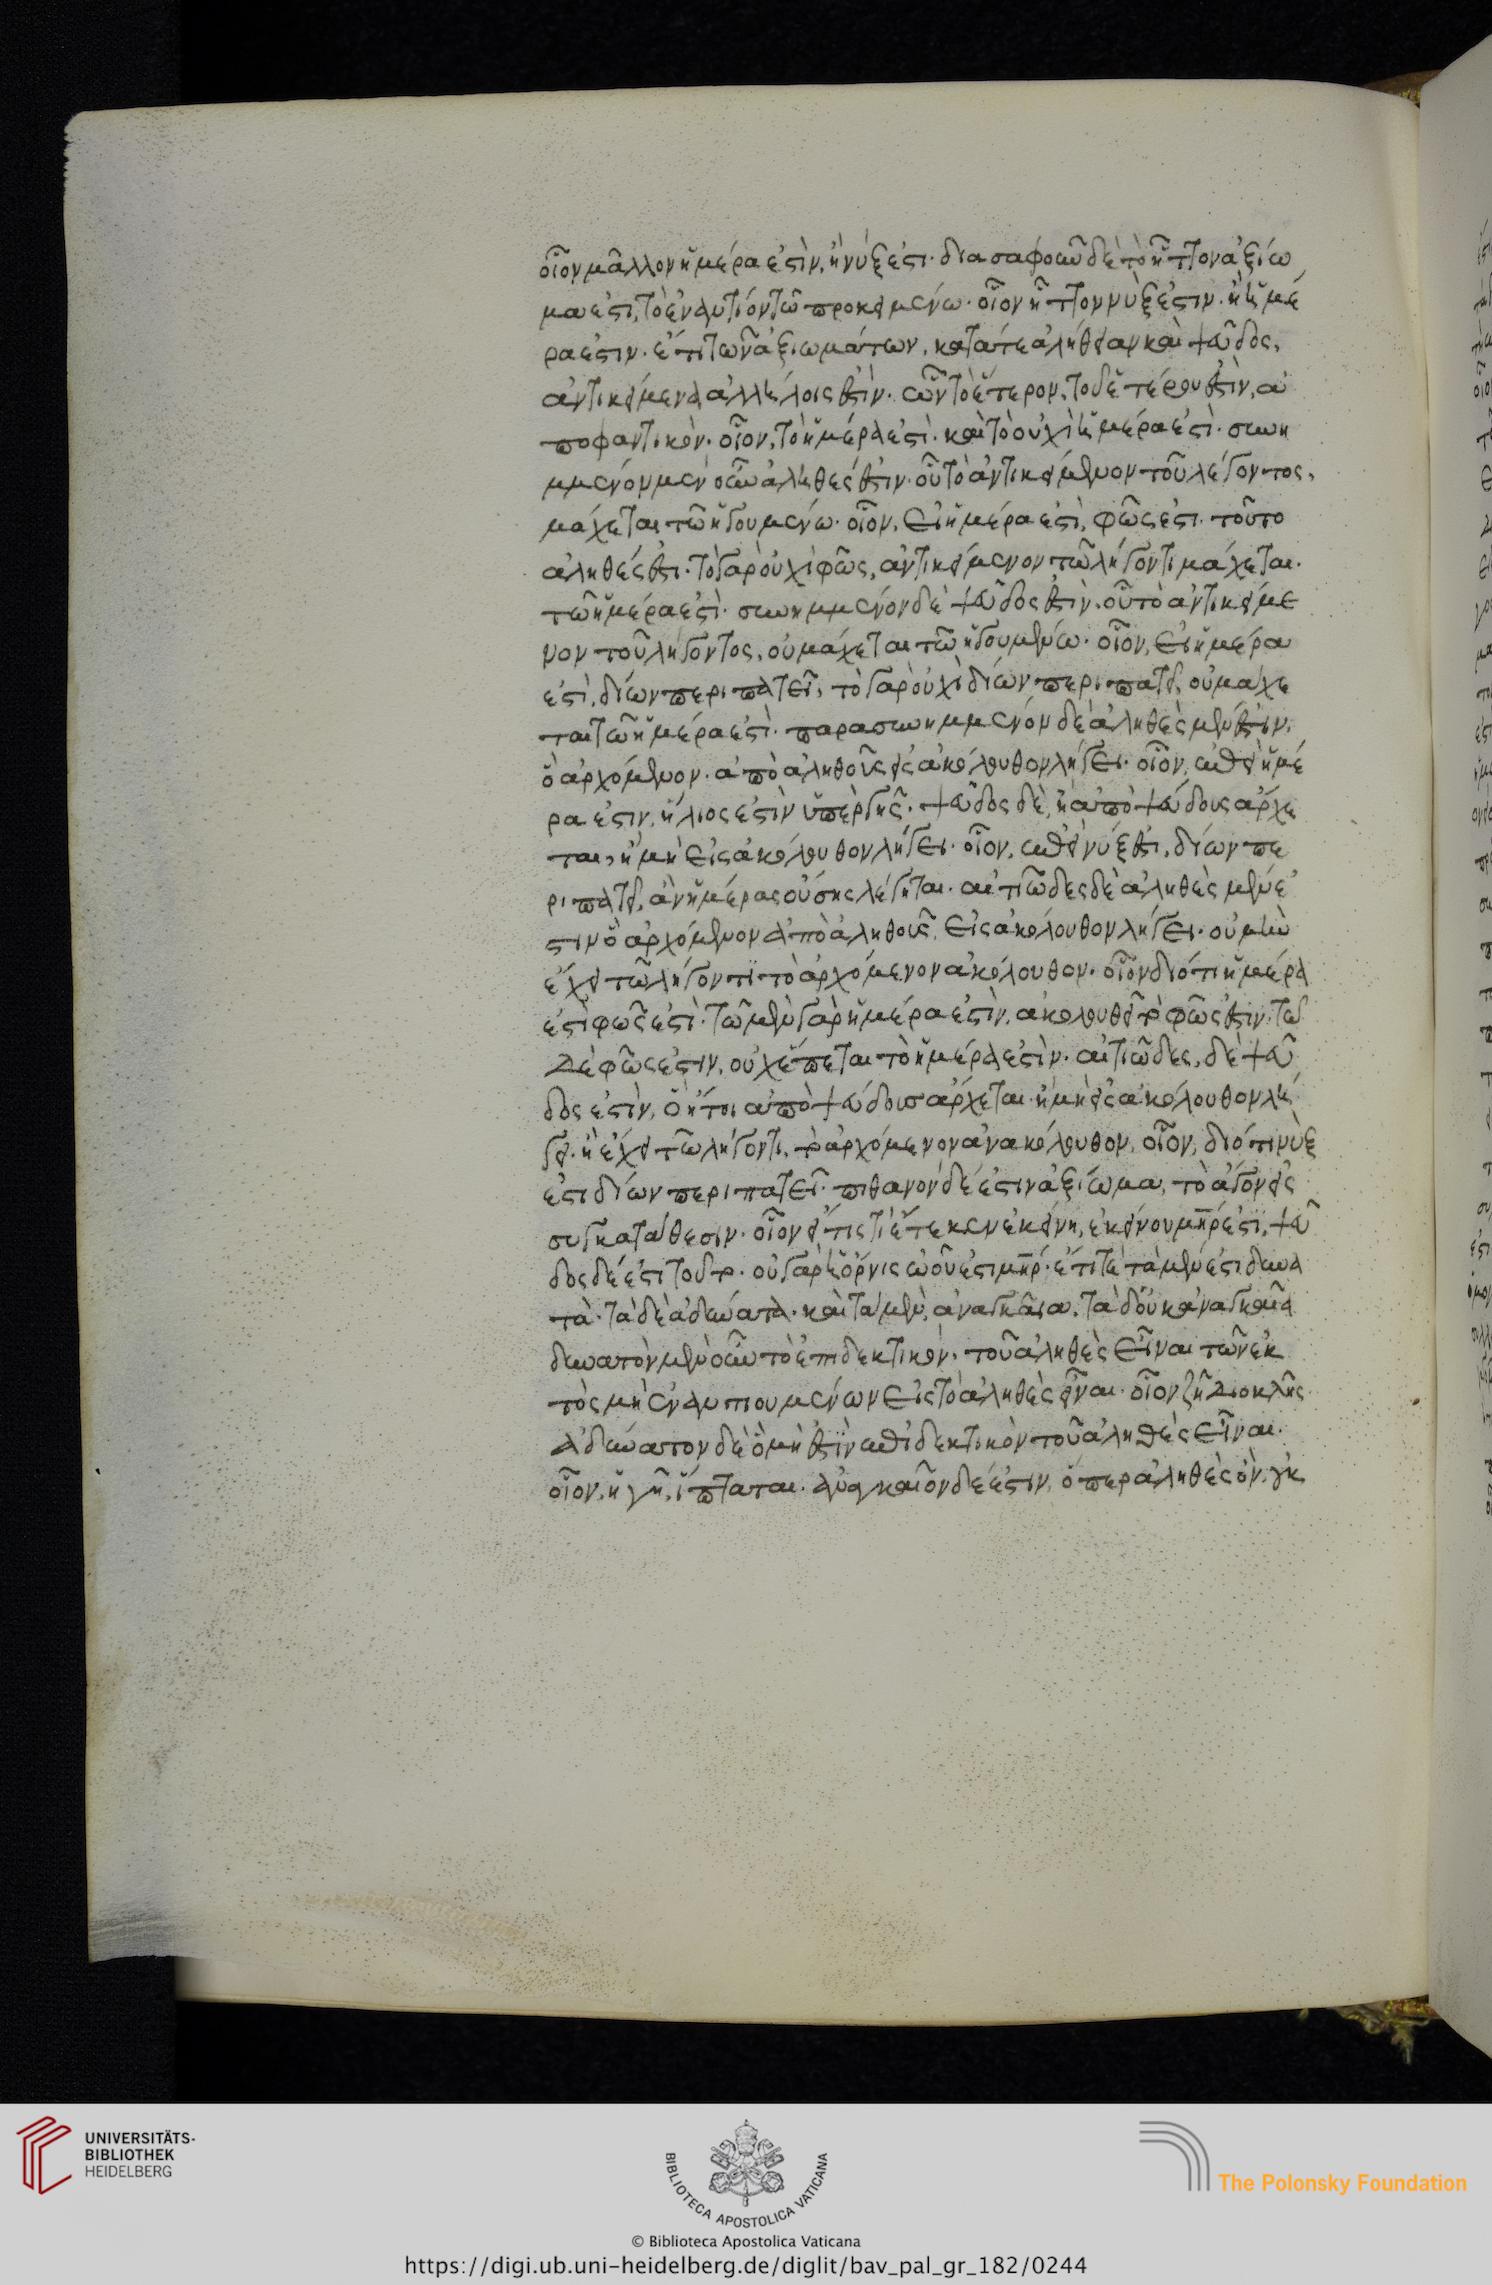 οἷον μᾶλλον ἡμέρα ἐστὶν, ἢ νύξ ἐστι· διασαφοῦν δὲ τὸ ἧττον ἀξίω
μα ἐστι, τὸ ἐναντίον τῶ προκειμένω· οἷον ἧττον νὺξ ἐστιν· ἢ ἡμέ
ρα ἐστιν· ἔτι τῶν ἀξιωμάτων, κατά τε ἀλήθειαν καὶ ψεῦδος,
ἀντικείμενα ἀλλήλοις ἐστὶν· ὧν τὸ ἕτερον, τοῦ ἑτέρου ἐστὶν, ἀ
ποφαντικὸν· οἷον, τὸ ἡμέρα ἐστὶ· καὶ τὸ οὐχὶ ἡμέρα ἐστὶ· συνη
μμένον μὲν οὖν ἀληθές ἐστιν· οὗ τὸ ἀντικείμενον τοῦ λέγοντος,
μάχεται τῶ ἡγουμένω· οἷον, εἰ ἡμέρα ἐστὶ, φῶς ἐστι· τοῦτο
ἀληθές ἐστι· τὸ γὰρ οὐχὶ φῶς, ἀντικείμενον τῶ λήγοντι μάχεται·
τῶ ἡμέρα ἐστὶ· συνημμένον δὲ ψεῦδος ἐστὶν· οὗ τὸ ἀντικείμε
νον τοῦ λήγοντος, οὐ μάχεται τῶ ἡγουμένω· οἷον, εἰ ἡμέρα
ἐστὶ, δίων περιπατεῖ, τὸ γὰρ οὐχὶ δίων περιπατεῖ, οὐ μάχε
ται τῶ ἡμέρα ἐστὶ· παρασυνημμένον δὲ ἀληθὲς μὲν ἐστιν,
ὃ ἀρχόμενον· ἀπὸ ἀληθοῦς εἰς ἀκόλουθον λήγει· οἷον, ἐπεὶ ἡμέ
ρα ἐστιν, ἥλιος ἐστὶν ὑπὲρ γῆς· ψεῦδος δὲ, ἢ ἀπὸ ψεύδους ἄρχε
ται, ἢ μὴ εἰς ἀκόλουθον λήγει· οἷον, ἐπεὶ νύξ ἐστι, δίων πε
ριπατεῖ, ἂν ἡμέρας οὔσης λέγηται· αἰτιῶδες δὲ ἀληθὲς μὲν ἐ
στιν ὃ ἀρχόμενον ἀπὸ ἀληθοῦς, εἰς ἀκόλουθον λήγει· οὐ μὴν
ἔχει τῶ λήγοντι τὸ ἀρχόμενον ἀκόλουθον· οἷον διότι ἡμέρα
ἐστὶ φῶς ἐστὶ· τῶ μὲν γὰρ ἡμέρα ἐστὶν, ἀκολουθεῖ τὸ φῶς ἐστιν· τῶ
δὲ φῶς ἐστιν, οὐχ ἕπεται τὸ ἡμέρα ἐστὶν· αἰτιῶδες, δὲ ψεῦ
δος ἐστὶν, ὃ ἤτοι ἀπὸ ψεύδους ἄρχεται· ἢ μὴ εἰς ἀκόλουθον λή
γει· ἢ ἔχει τῶ λήγοντι, τὸ ἀρχόμενον ἀνακόλουθον, οἷον, διότι νὺξ
ἐστι δίων περιπατεῖ· πιθανὸν δέ ἐστιν ἀξίωμα, τὸ ἄγον εἰς
συγκατάθεσιν· οἷον εἴ τις τὶ ἔτεκεν ἐκείνη, ἐκείνου μηρ ἐστι, ψεῦ
δος δέ ἐστι τοῦτο· οὐ γὰρ ἡ ὄρνις ὠοῦ ἐστι μηρ· ἔτι τὲ τὰ μὲν ἐστι δυνα
τὰ· τὰ δὲ ἀδύνατα· καὶ τὰ μὲν, ἀναγκαῖα, τὰ δ' οὐκ ἀναγκαῖα
δυνατὸν μὲν οὖν τὸ ἐπιδεκτικὸν, τοῦ ἀληθὲς εἶναι τῶν ἐκ
τὸς μὴ ἐναντιουμένων εἰς τὸ ἀληθὲς εἶναι· οἷον ζῆ διοκλῆς·
ἀδύνατον δὲ ὃ μὴ ἐστὶν ἐπιδεκτικὸν τοῦ ἀληθὲς εἶναι·
οἷον, ἡ γῆ, ἵπταται· ἀναγκαῖον δέ ἐστιν, ὅπερ ἀληθὲς ὂν, οὐκ
UNIVERSITÄTS-
BIBLIOTHEK
HEIDELBERG
BIBLIOTECA APOSTOLICA VATICANA
The Polonsky Foundation
© Biblioteca Apostolica Vaticana
https://digi.ub.uni-heidelberg.de/diglit/bav_pal_gr_182/0244